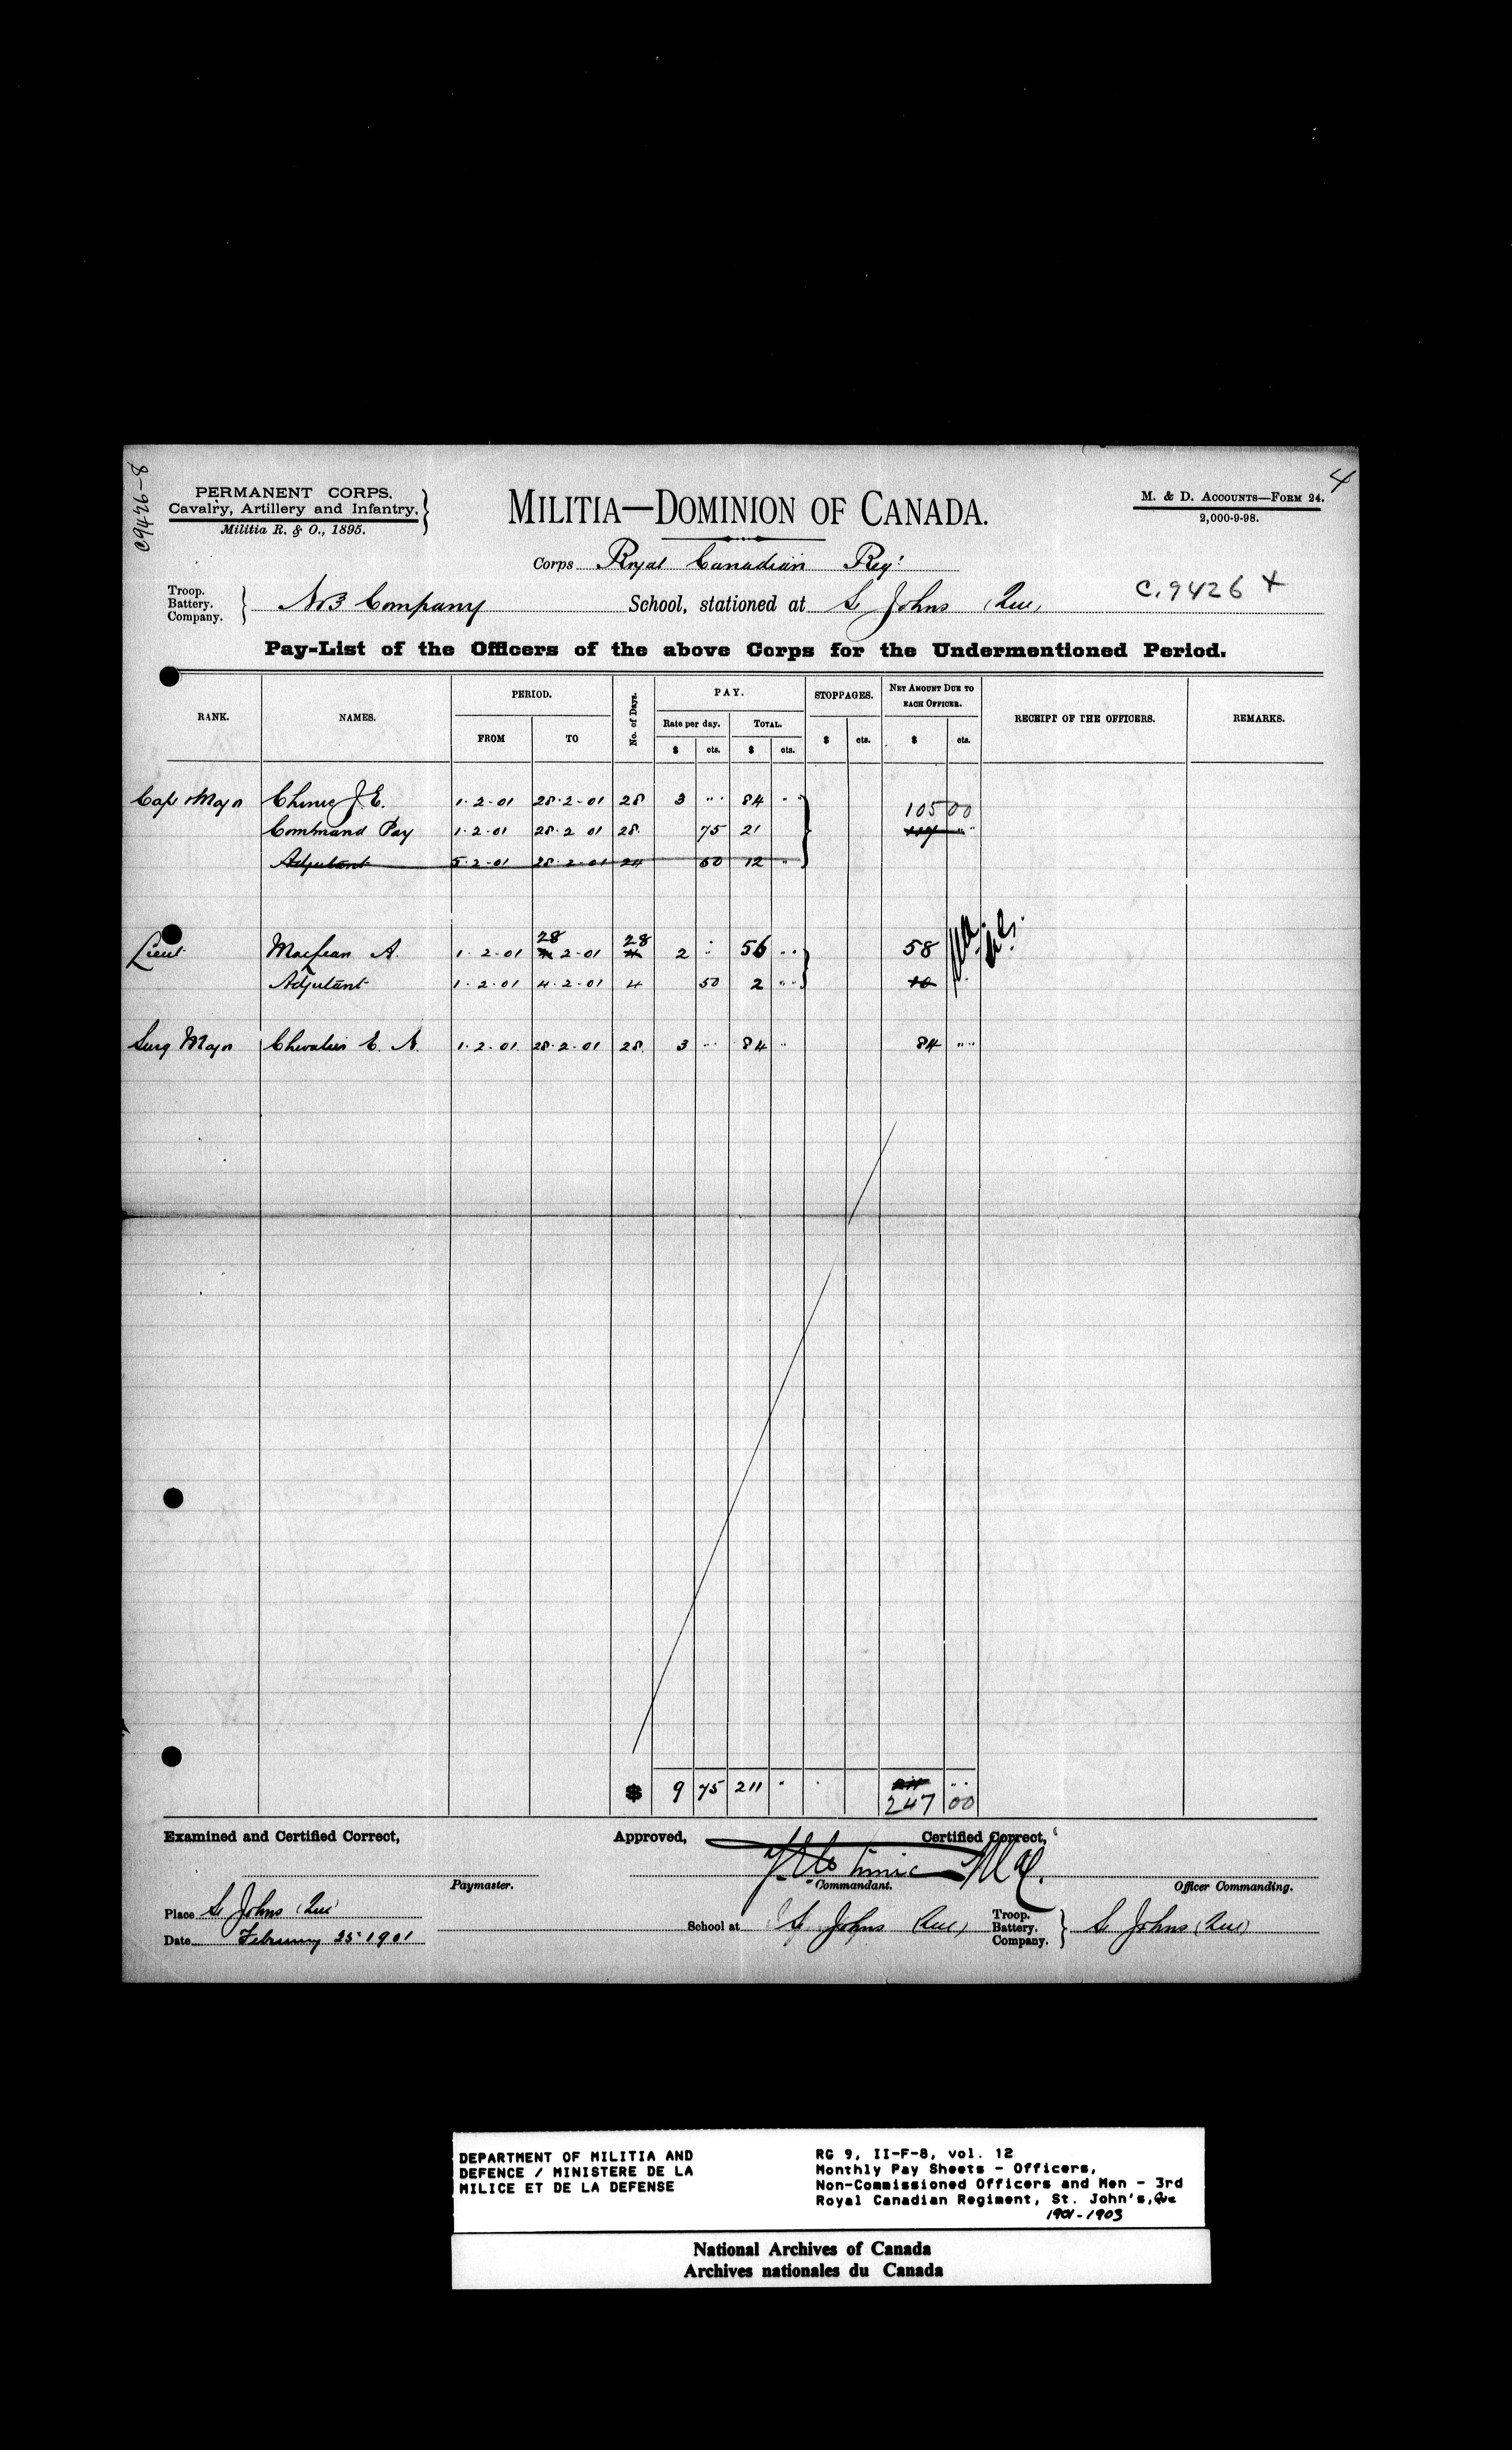 C9426-8
4
PERMANENT CORPS.
Cavalry, Artillery and Infantry.
Militia R. & O., 1895.
MILITIA—DOMINION OF CANADA.
M. & D. ACCOUNTS—FORM 24.
2,000-9-98.
Corps Royal Canadian Reg.t
Troop.
Battery.
Company.
No 3 Company School, stationed at St Johns (Que)
C.9426 X
Pay-List of the Officers of the above Corps for the Undermentioned Period.
RANK. NAMES. PERIOD. No. of Days. PAY. STOPPAGES. NET AMOUNT DUE TO EACH OFFICER. RECEIPT OF THE OFFICERS. REMARKS.
FROM TO Rate per day. TOTAL.
$ cts. $ cts. $ cts. $ cts.
Capt & Major Chinic J. E. 1.2.01 28.2.01 28 3 " 84 " 105 00
Command Pay 1.2.01 28.2.01 28 75 21 117 "
Adjutant 5.2.01 28.2.01 24 50 12 "
28 28
Lieut MacLean A. 1.2.01 2.01 2 " 56 " 58
Adjutant 1.2.01 4.2.01 4 50 2 " 10
Surg Major Chevalier E. A. 1.2.01 28.2.01 28 3 " 84 " 84 "
$ 9 75 211 " "
247 00
Examined and Certified Correct, Approved, Certified Correct,
Paymaster. Commandant. Officer Commanding.
Place St Johns (Que)
School at St Johns (Que) Troop.
Battery.
Company. St Johns (Que)
Date February 25th 1901
DEPARTMENT OF MILITIA AND
DEFENCE / MINISTERE DE LA
MILICE ET DE LA DEFENSE
RG 9, II-F-8, vol. 12
Monthly Pay Sheets - Officers,
Non-Commissioned Officers and Men - 3rd
Royal Canadian Regiment, St. John's, Que
1901-1903
National Archives of Canada
Archives nationales du Canada